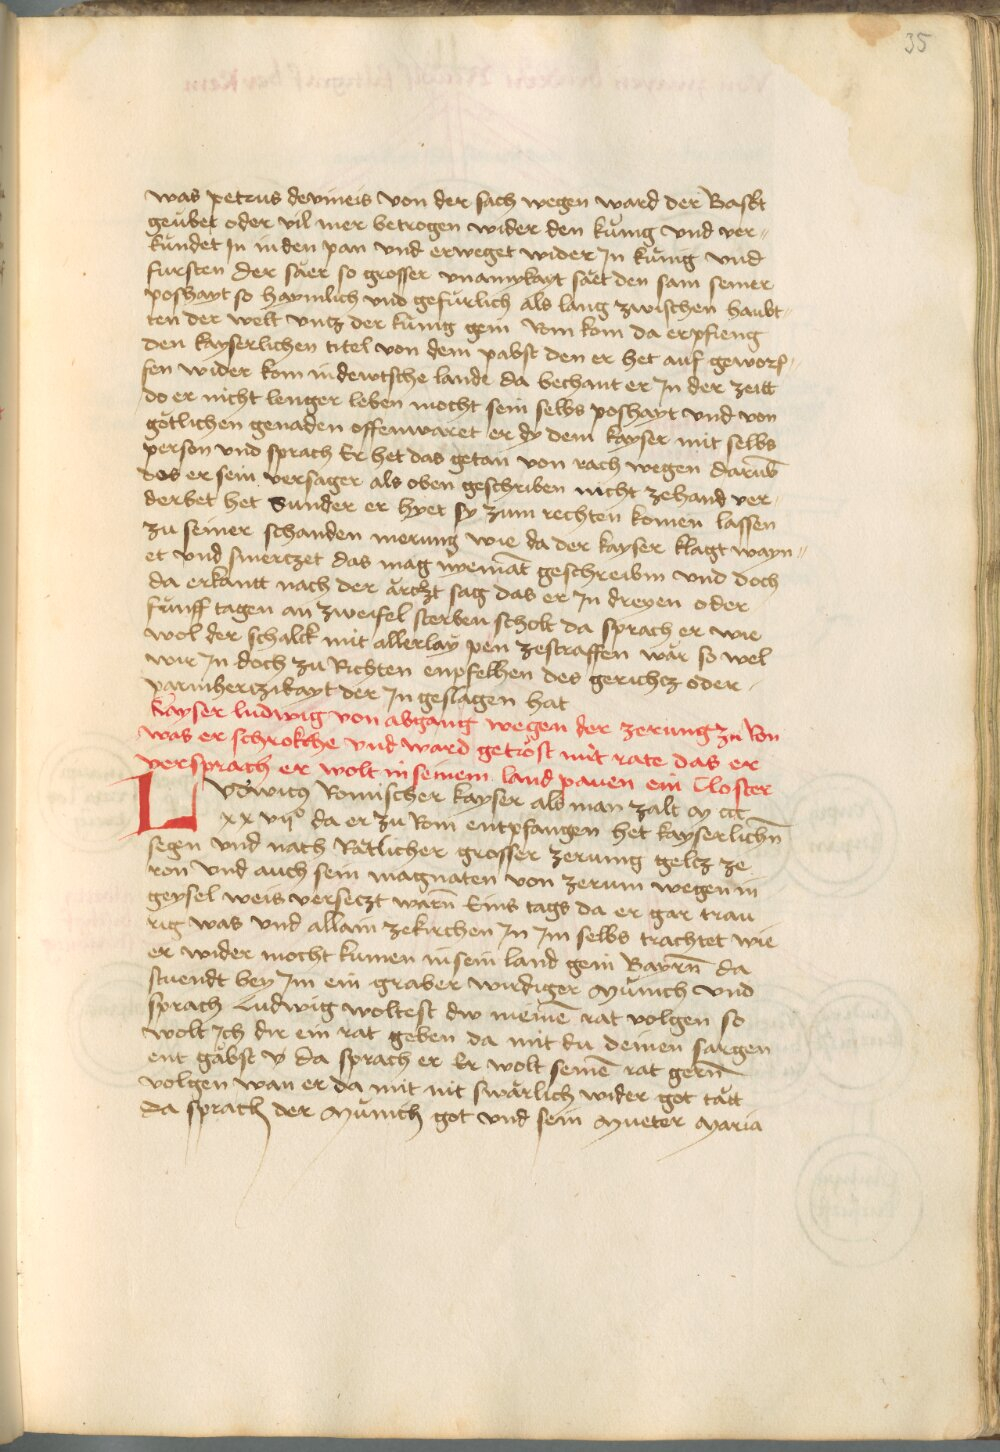 35
was petrus devineis von der sach wegen ward der Babst
geübet oder vil mer betrogen wider den künig vnd ver-
kündet In in den pan vnd erweget wider In künig vnd
fursten der säer so grosser vnainykayt säet den sam seiner
poshayt so haymlich vnd gefürlich als lang zwischen haubt-
ten der welt vntz der künig gein Rom kom da enpfieng
den kayserlichen titel von dem pabst den er het auf geworf-
fen wider kom in dewtsche lande da bechant er In der zeitt
do er nicht lenger leben mocht sein selbs poshayt vnd von
götlichen genaden offenwaret er dy dem kayser mit selbs
person vnd sprach Er het das getan von rach wegen darūb
das er sein versager als oben geschriben nicht zehand ver-
derbet het Sunder er hyet sy zum rechten komen lassen
zu seiner schanden merung wie da der kayser klagt wayn-
et vnd smerczet das mag nyemāt geschreibm vnd doch
da erkantt nach der ärczt sag das er In dreyen oder
fünff tagen an zweifel sterben scholt da sprach er wie
wol der schalck mit allerlay pen zestraffen wär so wel
wir In doch zu Richten enpfelhen des gerichtz oder
parmherczikayt der In geslagen hat
Kayser ludwig von abgang wegen der zerung zu Rom
was er schrokche vnd ward getröst mit rate das er
versprach er wolt in seinem land pauen ein Closter
LVdwicus Romischer kayser als man zalt M ccc
xx vijᵒ da er zu Rom entpfangen het kayserlichn̄
segen vnd nach Rätlicher grosser zerung geltz ze
ron vnd auch sein magnaten von zerum wegen in
geysel weis verseczt warn̄ Eins tags da er gar trau
rig was vnd allain zekirchen In Im selbs trachtet wie
er wider mocht kumen in sein land gein Bayrn̄ da
stuendt bey Im ein graber wirdiger Münich vnd
sprach Ludwig woltest dw meinē rat volgen so
wolt Ich dir ein rat geben da mit du deinen sargen
ent gäbst v̈ da sprach er Er wolt seinē rat gern̄
volgen wan er da mit nit swärlich wider got tätt
da sprach der Münich got vnd sein Mueter Maria